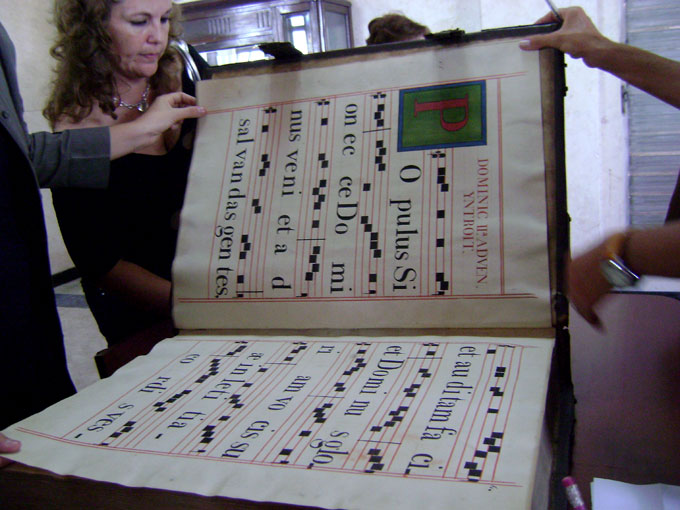 DOMINIC. IIª ADVEN.
YNTROIT.
P
O pulus Si
on ec ce Do mi
nus veni et a d
sal van das gen tes,
et au di tam fa ci,
et Domi nu s glo,
ri am vo cis su
æ in leti tia -
co rdi s ves -